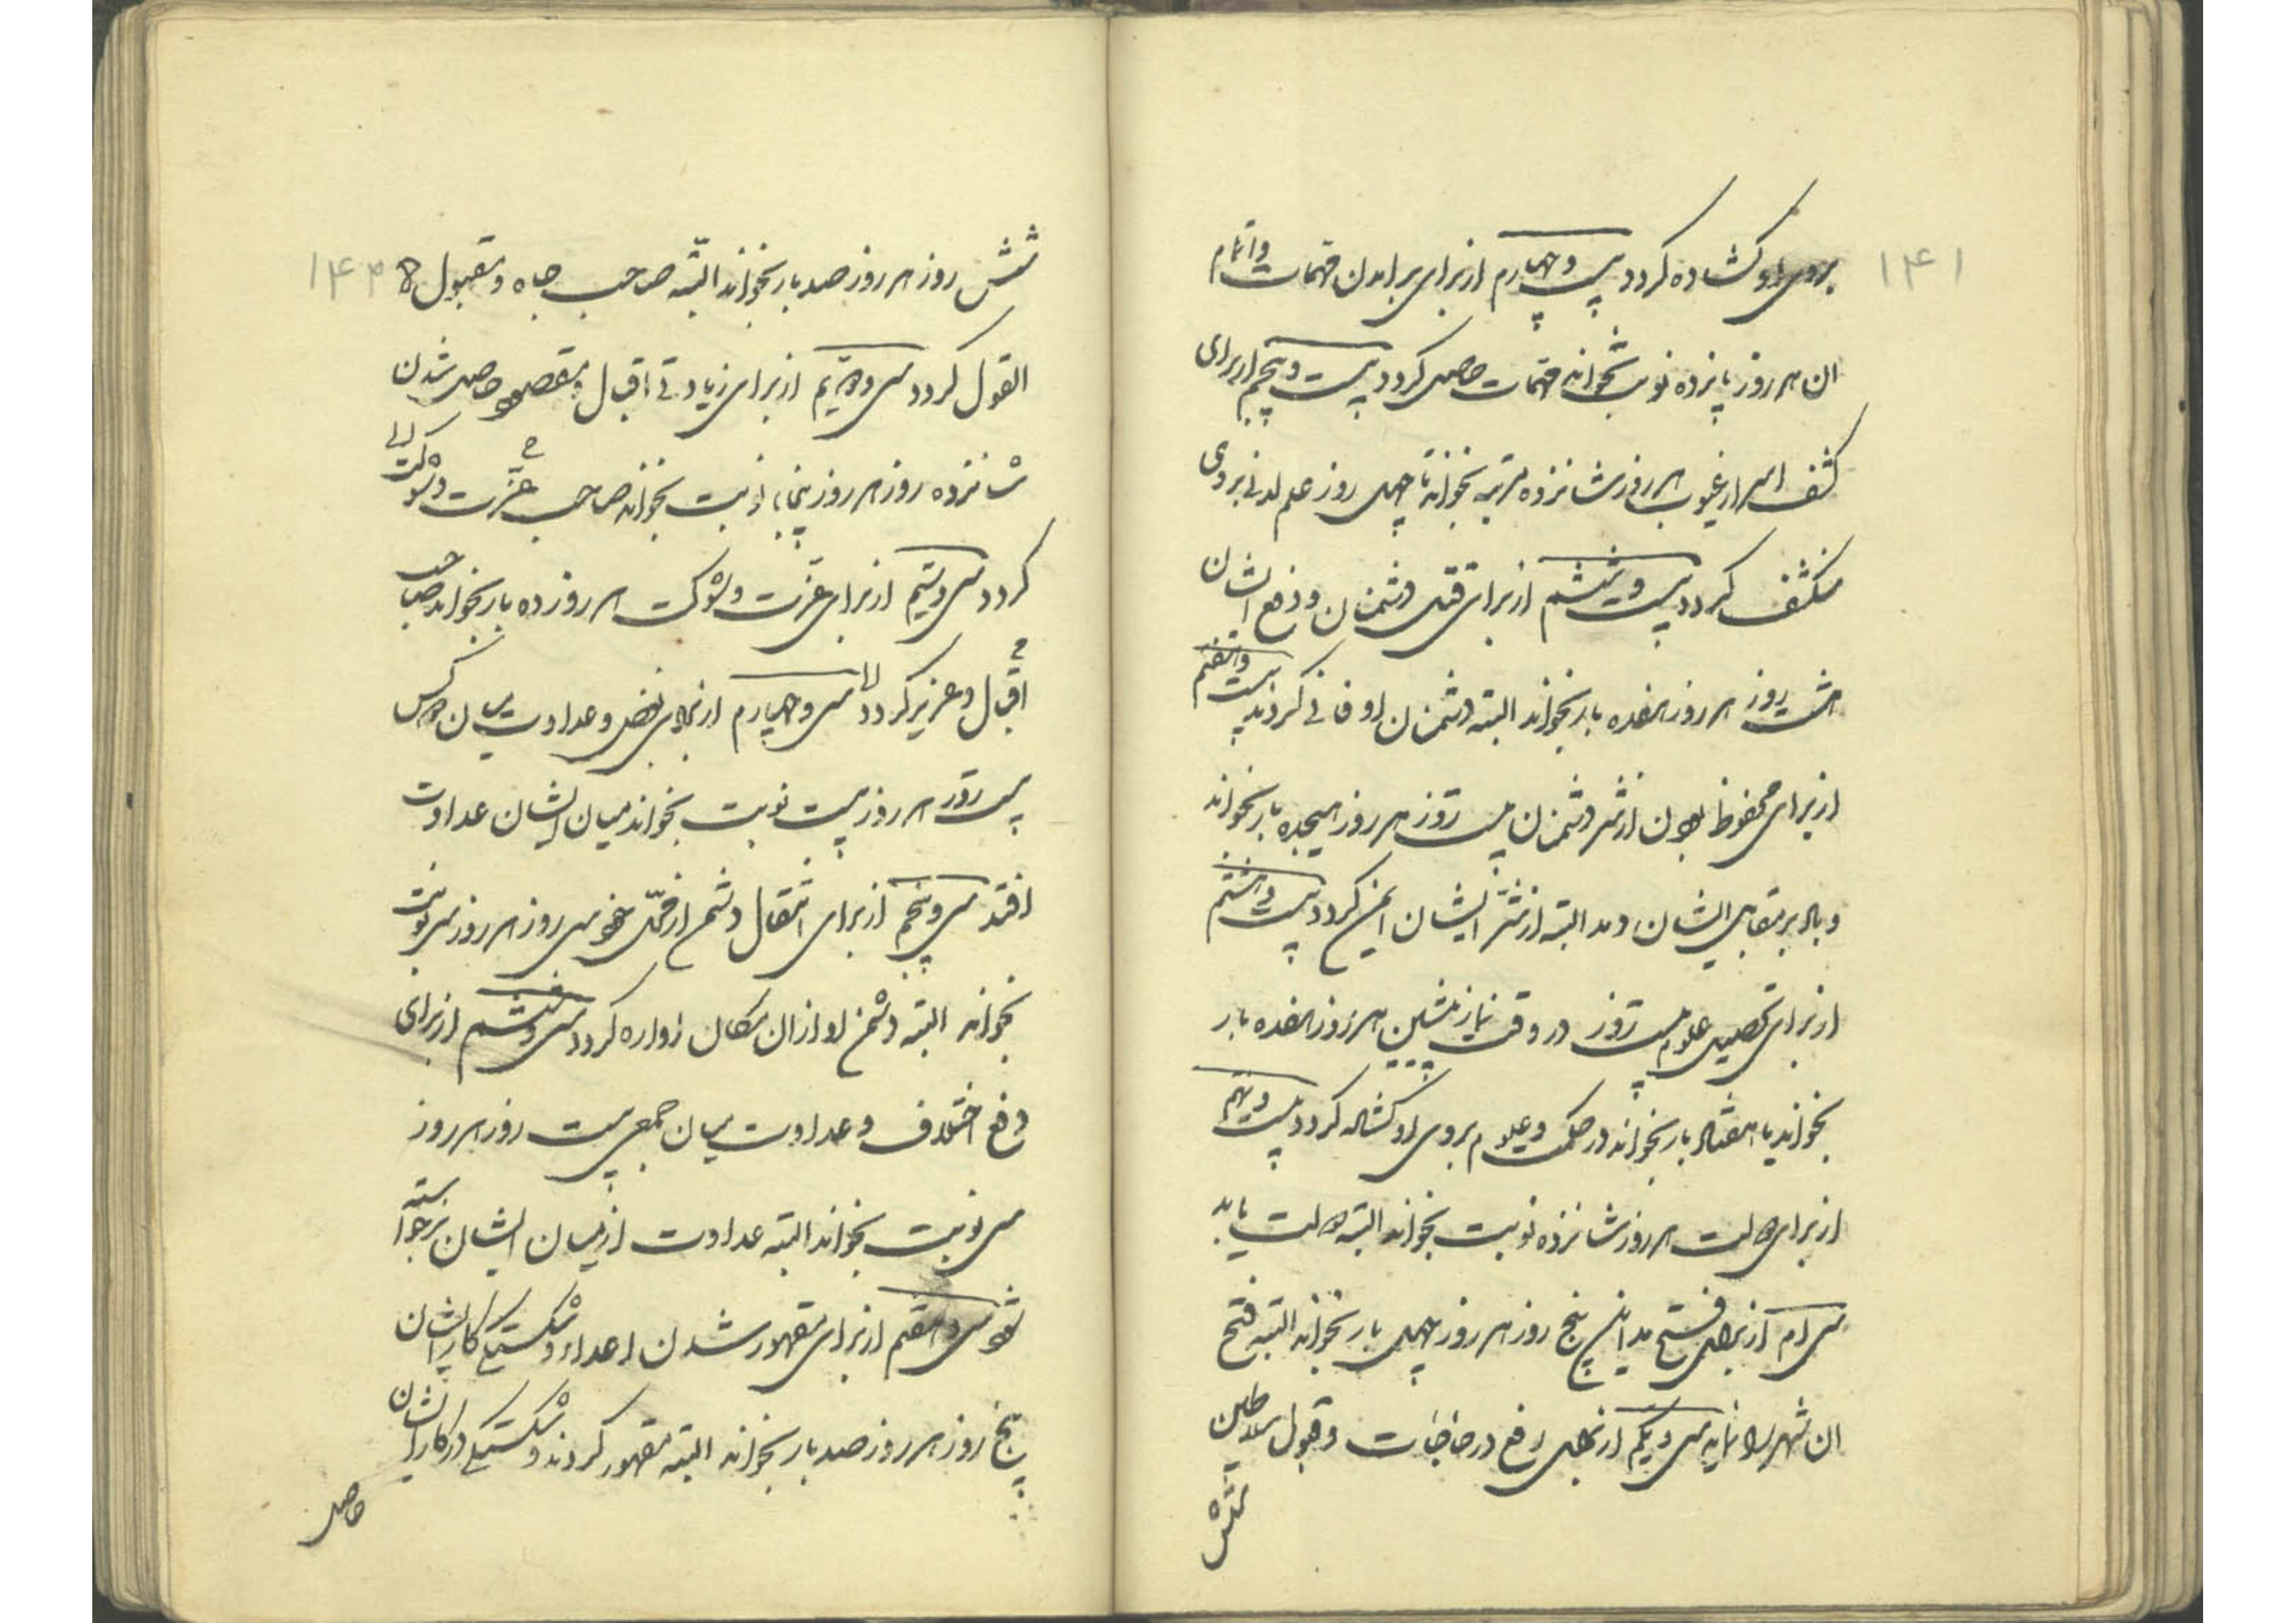 ۱۴۱
بروی او کشاده کردد بیست و چهارم از برای برامدن مهمات و اتمام
ان هر روز پانزده نوبت بخواند مهمات حاصل کردد بیست و پنجم از برای
کشف اسرار غیوب هر روز شانزده مرتبه بخواند تا چهل روز علم لدنی بروی
منکشف کردد بیست و ششم از برای قتل دشمنان و دفع ایشان
هشت روز هر روز هفده بار بخواند البته دشمنان او فانی کردند بیست و هفتم
از برای محفوظ بودن از شر دشمنان بیست روز هر روز هیجده بار بخواند
و باد بر مقابل ایشان دمد البته از شر ایشان ایمن کردد بیست و هشتم
از برای تحصیل علوم بیست روز در وقت نماز پیشین هر روز هفده بار
بخواند یا هفتاد بار بخواند در حکمت و علوم بروی او کشاده کردد بیست و نهم
از برای دولت هر روز شانزده نوبت بخواند البته دولت یابد
سی ام از برای فتح مداین پنج روز هر روز چهل بار بخواند البته فتح
ان شهر او نماید سی و یکم از برای رفع درجات و قبول سلاطین
شش
۱۴۲
شش روز هر روز صد بار بخواند البته صاحب جاه و مقبول
القول کردد سی و دویم از برای زیادتی اقبال و مقصود حاصل شدن
شانزده روز هر روز پنجاه نوبت بخواند صاحب عزت و شوکت
کردد سی و سیم از برای عزت و شوکت هر روز ده بار بخواند صاحب
اقبال و عزیز کردد سی و چهارم از برای بغض و عداوت میان دو کس
بیست روز هر روز بیست نوبت بخواند میان ایشان عداوت
افتد سی و پنجم از برای انتقال دشمن از محل خود سی روز هر روز سی نوبت
بخواند البته دشمن او از ان مکان اواره کردد سی و ششم از برای
دفع اختلاف و عداوت میان جمعی بیست روز هر روز
سی نوبت بخواند البته عداوت از میان ایشان برخواسته
شود سی و هفتم از برای مقهور شدن اعداء و شکستکی کار ایشان
پنج روز هر روز صد بار بخواند البته مقهور کردند و شکستکی در کار ایشان
حاصل